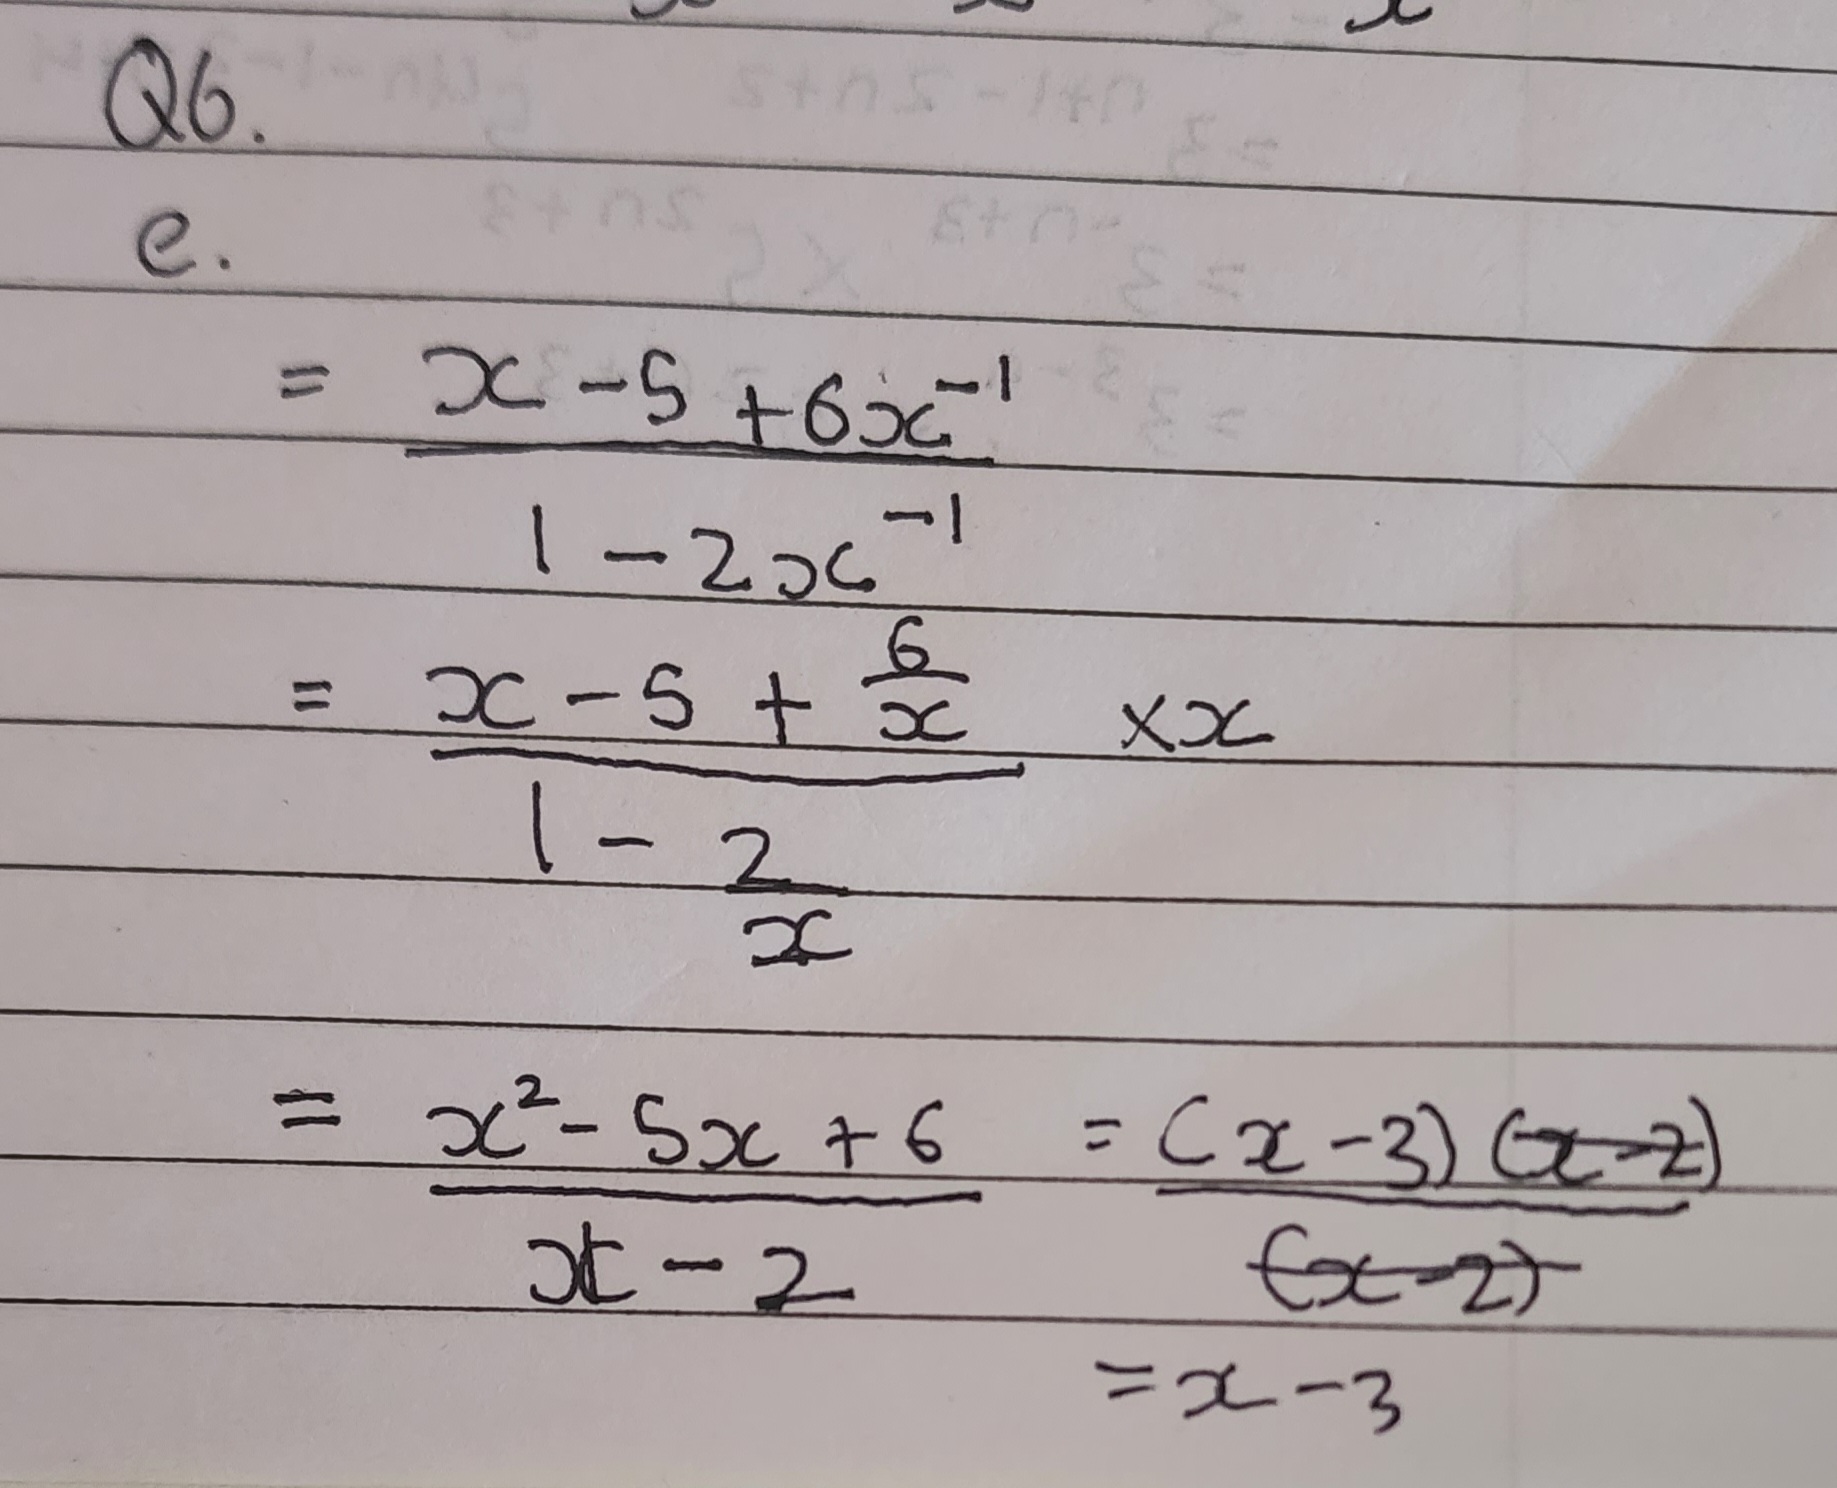 Q6.
e.
= x - 5 + 6x⁻¹
1 - 2x⁻¹
= x - 5 + 6/x × x
1 - 2/x
= x² - 5x + 6 = (x - 3) (x - 2)
x - 2 (x - 2)
= x - 3